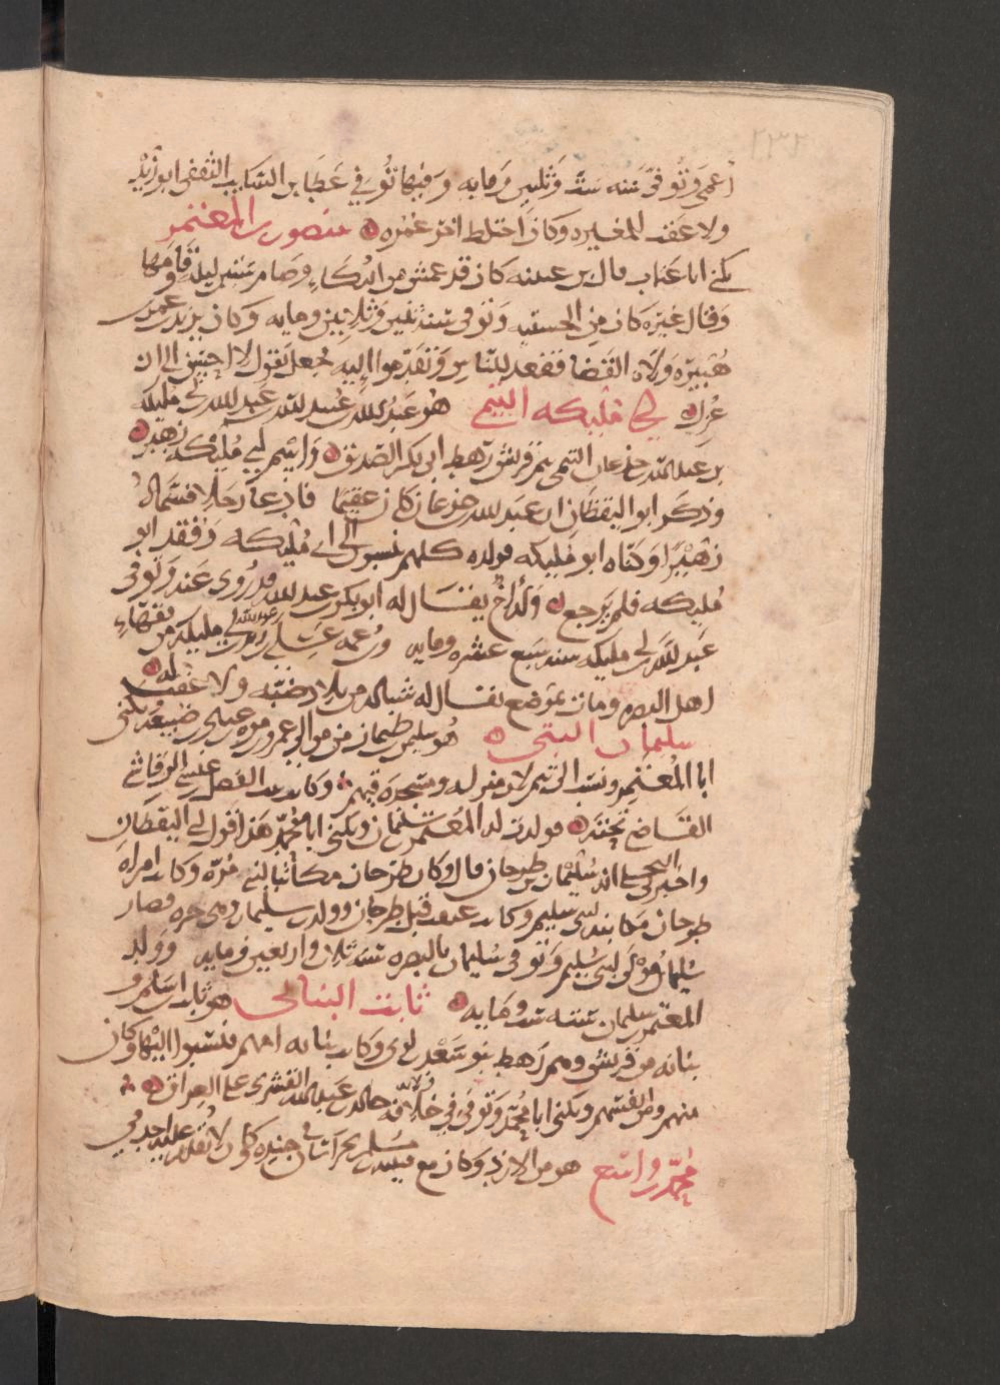 ٢٣٢
أعمى وتوفى سنه ست وثلثين ومايه وفيها توفي عطا بن السايب الثقفى ابو زيد
ولا عقب للمغيره وكان اختلط اخر عمره منصور بن المعتمر
يكنى ابا عتاب قال بن عيينه كان قد عمش من البكاء وصام ستين ليلة وقامها
وقال غيره كان من الحسبه وتوفى سنة ثنتين وثلاثين ومايه وكان يزيد بن عمر بن
هبيرة ولاه القضا فقعد للناس وتقدموا اليه فجعل يقول لا احسن الى ان
عزل ابن ابى مليكه التيمى هو عبد الله بن عبيد الله بن عبد الله بن ابى مليكه
بن عبد الله بن جدعان التيمى من قريش رهط ابى بكر الصديق واسم ابى مليكه زهير
وذكر ابو اليقظان ان عبد الله بن جدعان كان عقيما فادعا رجلا فسماه
زهيرا وكناه ابو مليكه فولده كلهم نسبوا الى ابى مليكه وفقد ابو
مليكه فلم يرجع وله اخ يقال له ابو بكر بن عبيد الله قد روى عنه وتوفى
عبد الله بن ابى مليكه سنه سبع عشره ومايه وعمه على بن زيد بن عبد الله بن ابى مليكة من فقهاء
اهل البصره ومات بموضع يقال له سيالة من بلاد ضبه ولا عقب له
سليمان التيمى هو سليمن بن طهمان من موالى عمرو بن مره بن عباد بن ضبيعه يكنى
ابا المعتمر ونسب الى تيم لان منزله ومسجده فيهم وكانت بنت الفضل بن عيسى الرقاشى
القاضى تحته فولدت له المعتمر بن سليمان ويكنى ابا محمد هذا قول ابى اليقظان
واخبرنى البجلى انه سليمان بن طرخان قال وكان طرخان مكاتبا لبنى مره وكانت امراة
طرخان مكاتبة لبنى سليم وكانت عتقت قبل طرخان وولدت سليمان وهى حره فصار
سليمان مولى لبنى سليم وتوفى سليمان بالبصره سنه ثلاث واربعين ومايه وولد
المعتمر بن سليمان سنه ست ومايه ثابت البنانى هو ثابت بن اسلم و
بنانه من قريش وهم رهط بنو سعد بن لوى وكانت بنانه امهم فنسبوا اليها وكان
منهم من انفسهم ويكنى ابا محمد وتوفى في ولاية خالد بن عبد الله القشرى على العراق
محمد بن واسع هو من الازد وكان مع قتيبه بن مسلم بخراسان في جنده وكان لا يقدم عليه احد في